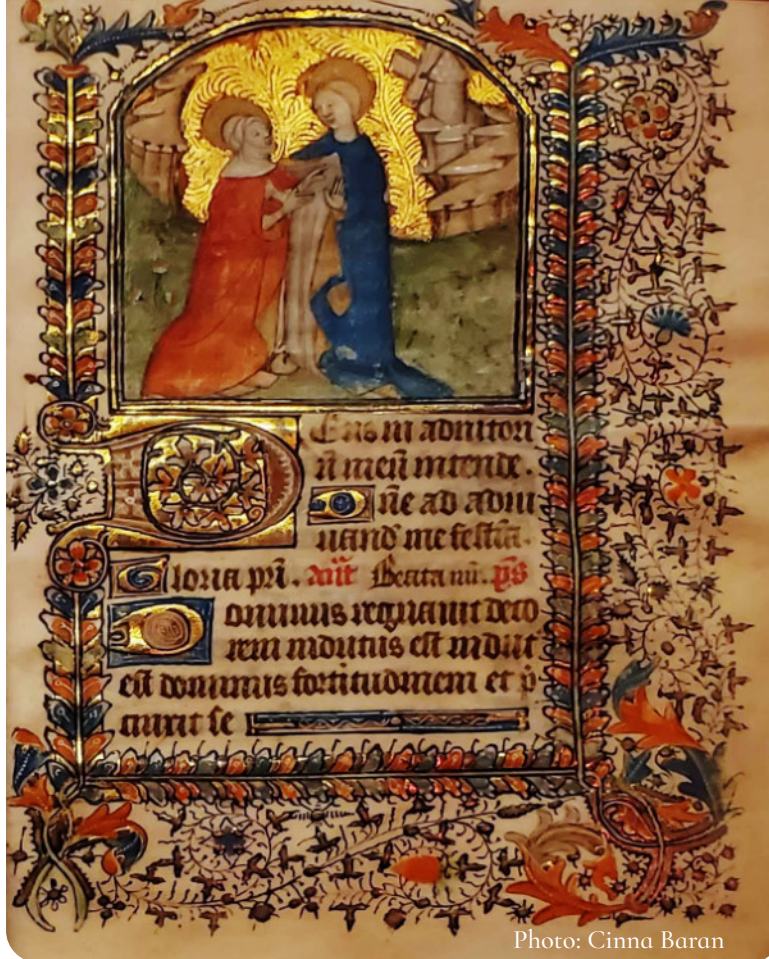 Deus in adiutori
ū meū intende.
Dñe ad adiu
uand' me festīa.
Gloria pr̄i. añt Beata m̄. p̄s
Dominus regnauit deco
rem indutus est indut'
est dominus fortitudinem et p̄
cinxit se
Photo: Cinna Baran